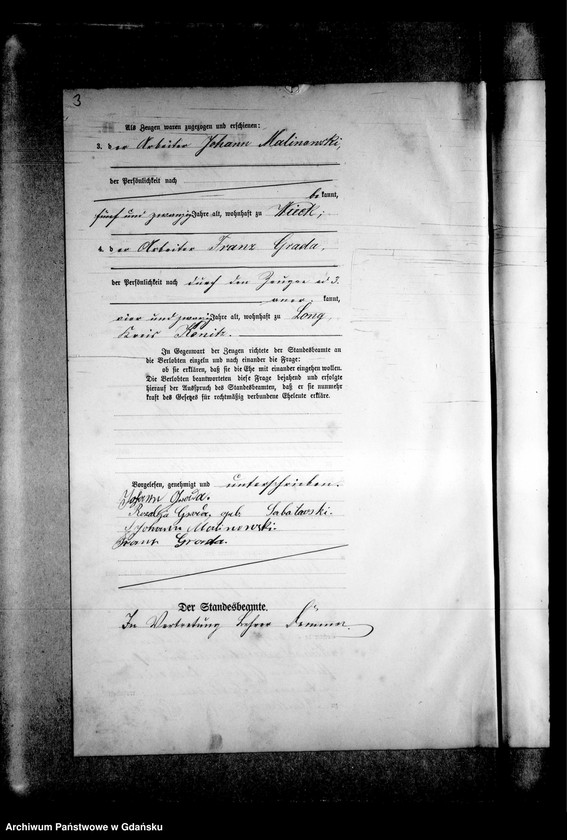 3
Als Zeugen waren zugezogen und erschienen:
3. der Arbeiter Johann Malinowski,
der Persönlichkeit nach
bekannt,
fünf und zwanzig Jahre alt, wohnhaft zu Wieck;
4. der Arbeiter Franz Grada,
der Persönlichkeit nach durch den Zeugen ad 3.
aner kannt,
vier und zwanzig Jahre alt, wohnhaft zu Long
Kreis Konitz.
In Gegenwart der Zeugen richtete der Standesbeamte an
die Verlobten einzeln und nach einander die Frage:
ob sie erklären, daß sie die Ehe mit einander eingehen wollen.
Die Verlobten beantworteten diese Frage bejahend und erfolgte
hierauf der Ausspruch des Standesbeamten, daß er sie nunmehr
kraft des Gesetzes für rechtmäßig verbundene Eheleute erkläre.
Vorgelesen, genehmigt und unterschrieben.
Johann Grada.
Rozalja Grada geb. Sabatowski.
Johann Malinewski.
Franz Grada.
Der Standesbeamte.
In Vertretung Lehrer
Archiwum Państwowe w Gdańsku